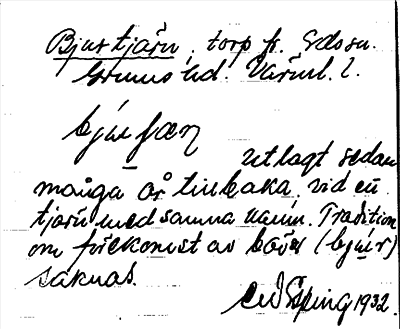 Bjurtjärn, torp fr. Eda sn.
Grums hd. Värml. l.
utlagt sedan
många år tillbaka, vid en
tjärn med samma namn. Tradition
om förekomst av bäver (bjur)
saknas.
1932.